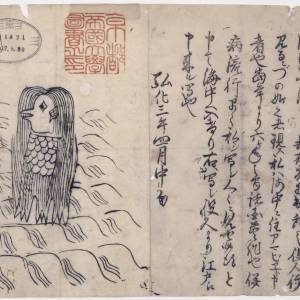 見るニづの如く者現ス私ハ海中ニ住アマビヱト申
者也当年より六ヶ年之間諸国豊作也併
病流行早々私ヲ写シ人々ニ見セ候得と
申て海中へ入けり右ハ写シ役人より江戸え
申来ル写也
弘化三年四月中旬
京都
帝國大學
圖書之印